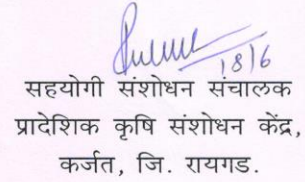 18/6
सहयोगी संशोधन संचालक
प्रादेशिक कृषि संशोधन केंद्र,
कर्जत, जि. रायगड.